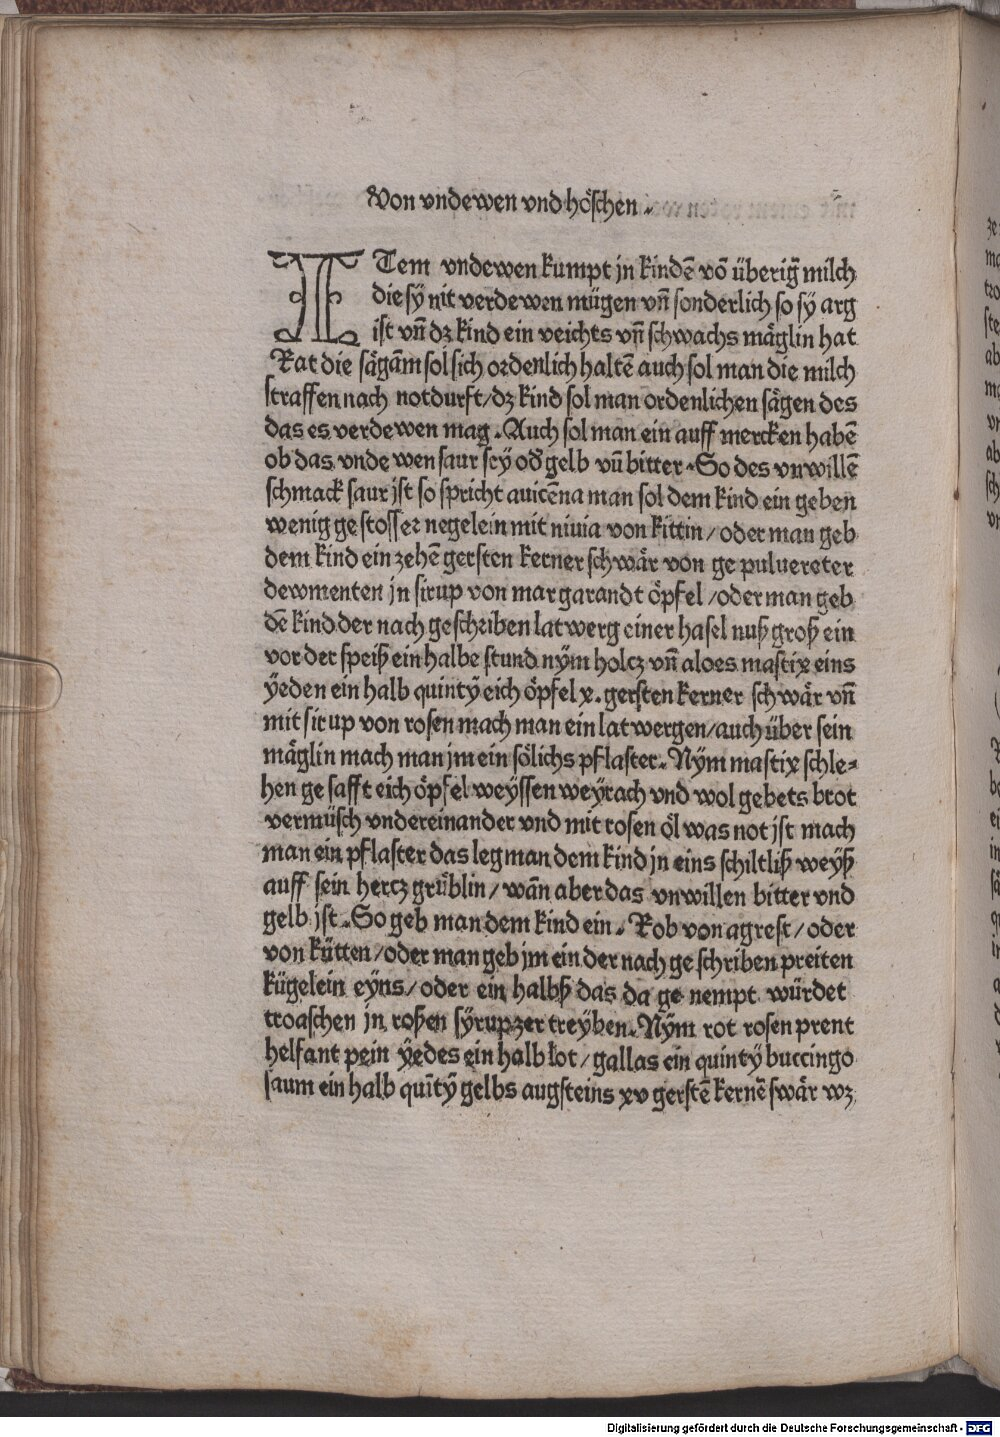 Von vndewen vnd höschen.
ITem vndewen kumpt jn kindē vō überig̃ milch
die sÿ nit verdewen mügen vn̄ sonderlich so sÿ arg
ist vn̄ dz kind ein veichts vn̄ schwachs mäglin hat
Rat die sägam̄ sol sich ordenlich haltē auch sol man die milch
straffen nach notdurft/dz kind sol man ordenlichen sägen des
das es verdewen mag. Auch sol man ein auff mercken habē
ob das vnde wen saur seÿ od̄ gelb vn̄ bitter. So des vnwillē
schmack saur jst so spricht auicēna man sol dem kind ein geben
wenig ge stosser negelein mit niuia von kittin/oder man geb
dem kind ein zehē gersten kerner schwär von ge puluereter
dewmenten jn sirup von mar garandt öpfel/oder man geb
dē kind der nach geschriben latwerg einer hasel nuß groß ein
vor der speiß ein halbe stund nÿm holcz vn̄ aloes mastix eins
ÿeden ein halb quintÿ eich öpfel x. gersten kerner schwär vn̄
mit sirup von rosen mach man ein latwergen/auch über sein
mäglin mach man jm ein sölichs pflaster. Nÿm mastix schle-
hen ge safft eich öpfel weyssen weÿrach vnd wol gebets brot
vermüsch vndereinander vnd mit rosen öl was not jst mach
man ein pflaster das leg man dem kind jn eins schiltliß weÿß
auff sein hercz grüblin/wān aber das vnwillen bitter vnd
gelb jst. So geb man dem kind ein. Rob von agrest/oder
von kütten/oder man geb jm ein der nach ge schriben preiten
kügelein eÿns/oder ein halbß das da ge nempt würdet
troaschen jn roßen sÿrup zer treÿben. Nÿm rot rosen prent
helfant pein ÿedes ein halb lot/gallas ein quintÿ buccingo
saum ein halb quītÿ gelbs augsteins xv gerstē kernē swär wz
Digitalisierung gefördert durch die Deutsche Forschungsgemeinschaft - DFG